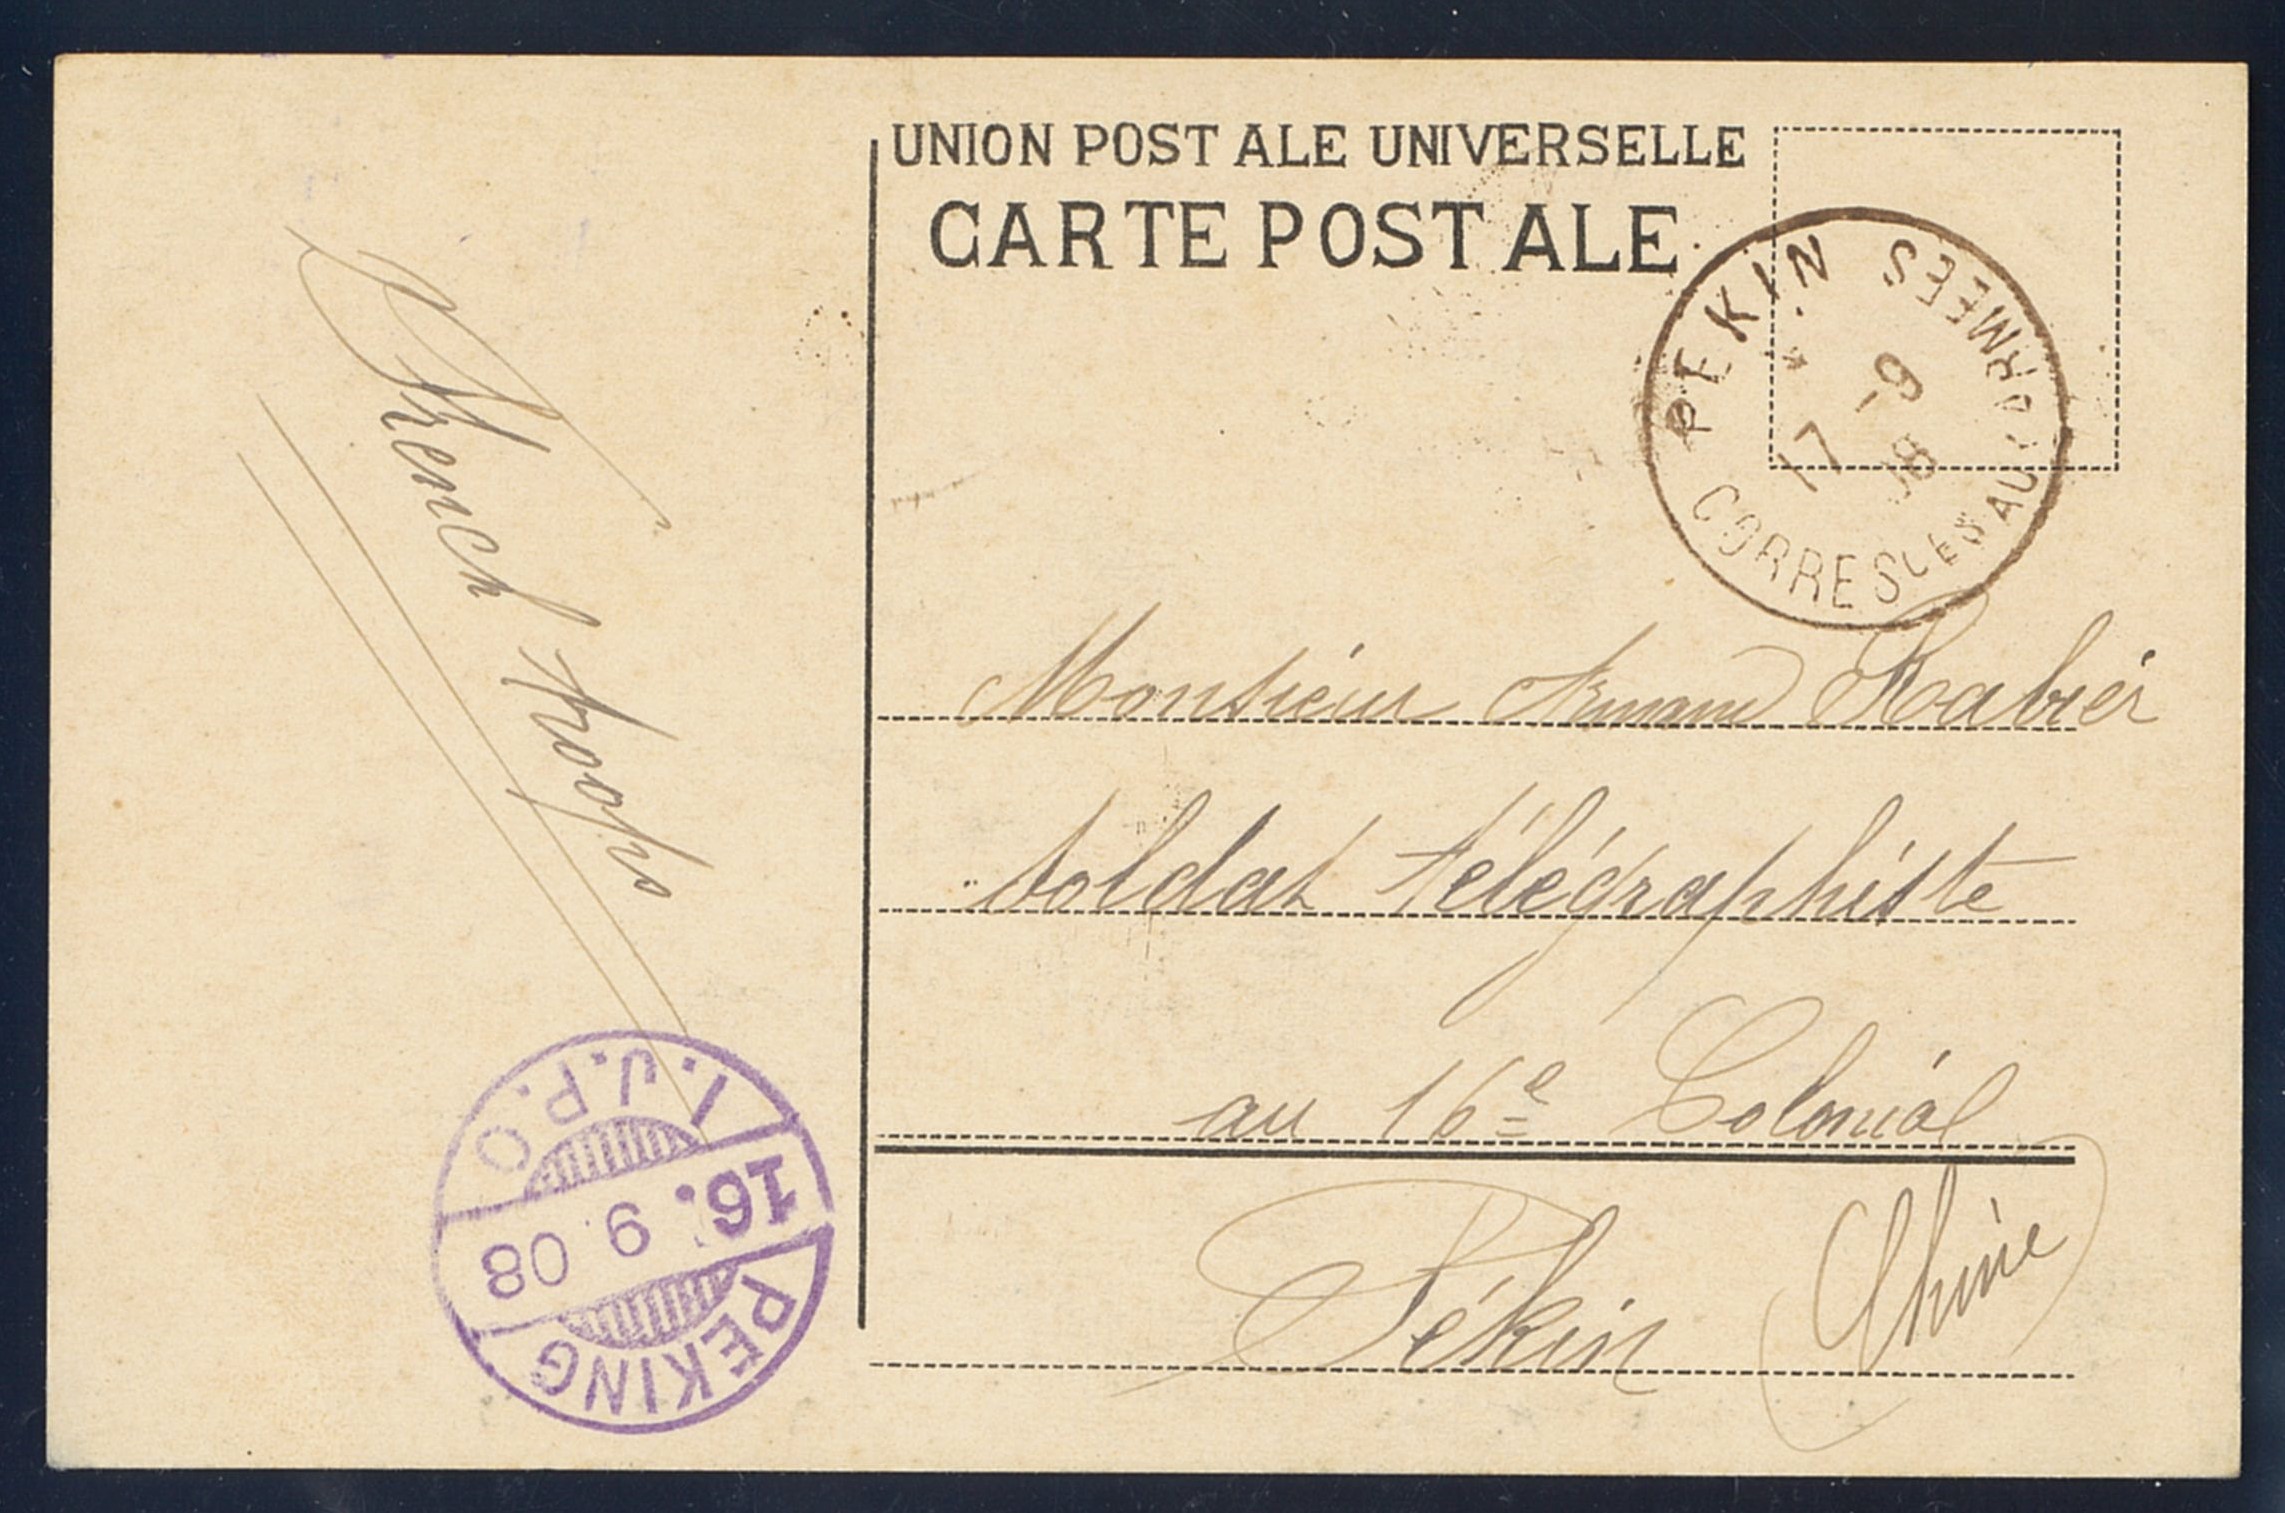 UNION POSTALE UNIVERSELLE
CARTE POSTALE
PEKIN
CORRES CES AUX ARMEES
17 -9
08
French troops
Monsieur Armand Rabier
soldat télégraphiste
au 16e Colonial
Pékin Chine
I.J.P.O
16. 9 08
PEKING